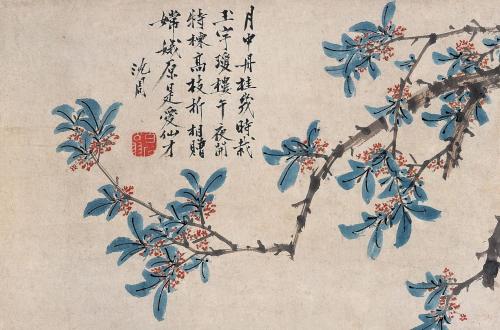 月中丹桂幾時栽
玉宇瓊樓午夜開
特揀高枝折相贈
嫦娥原是愛仙才
沈周